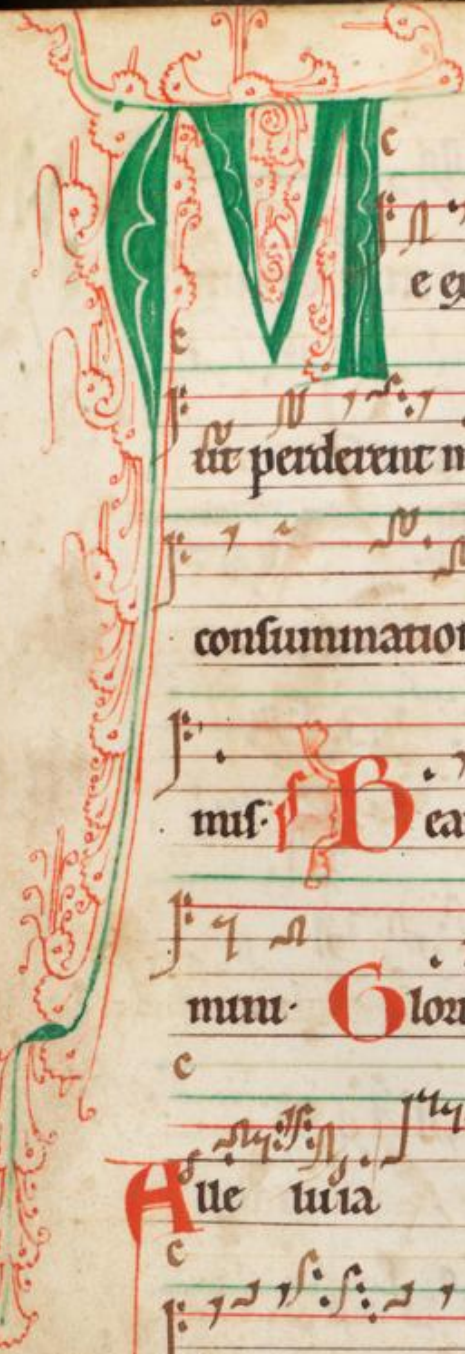 M e ex
ut perderent m
consummation
mus. ps Bea
mini. Glori
Alle luia